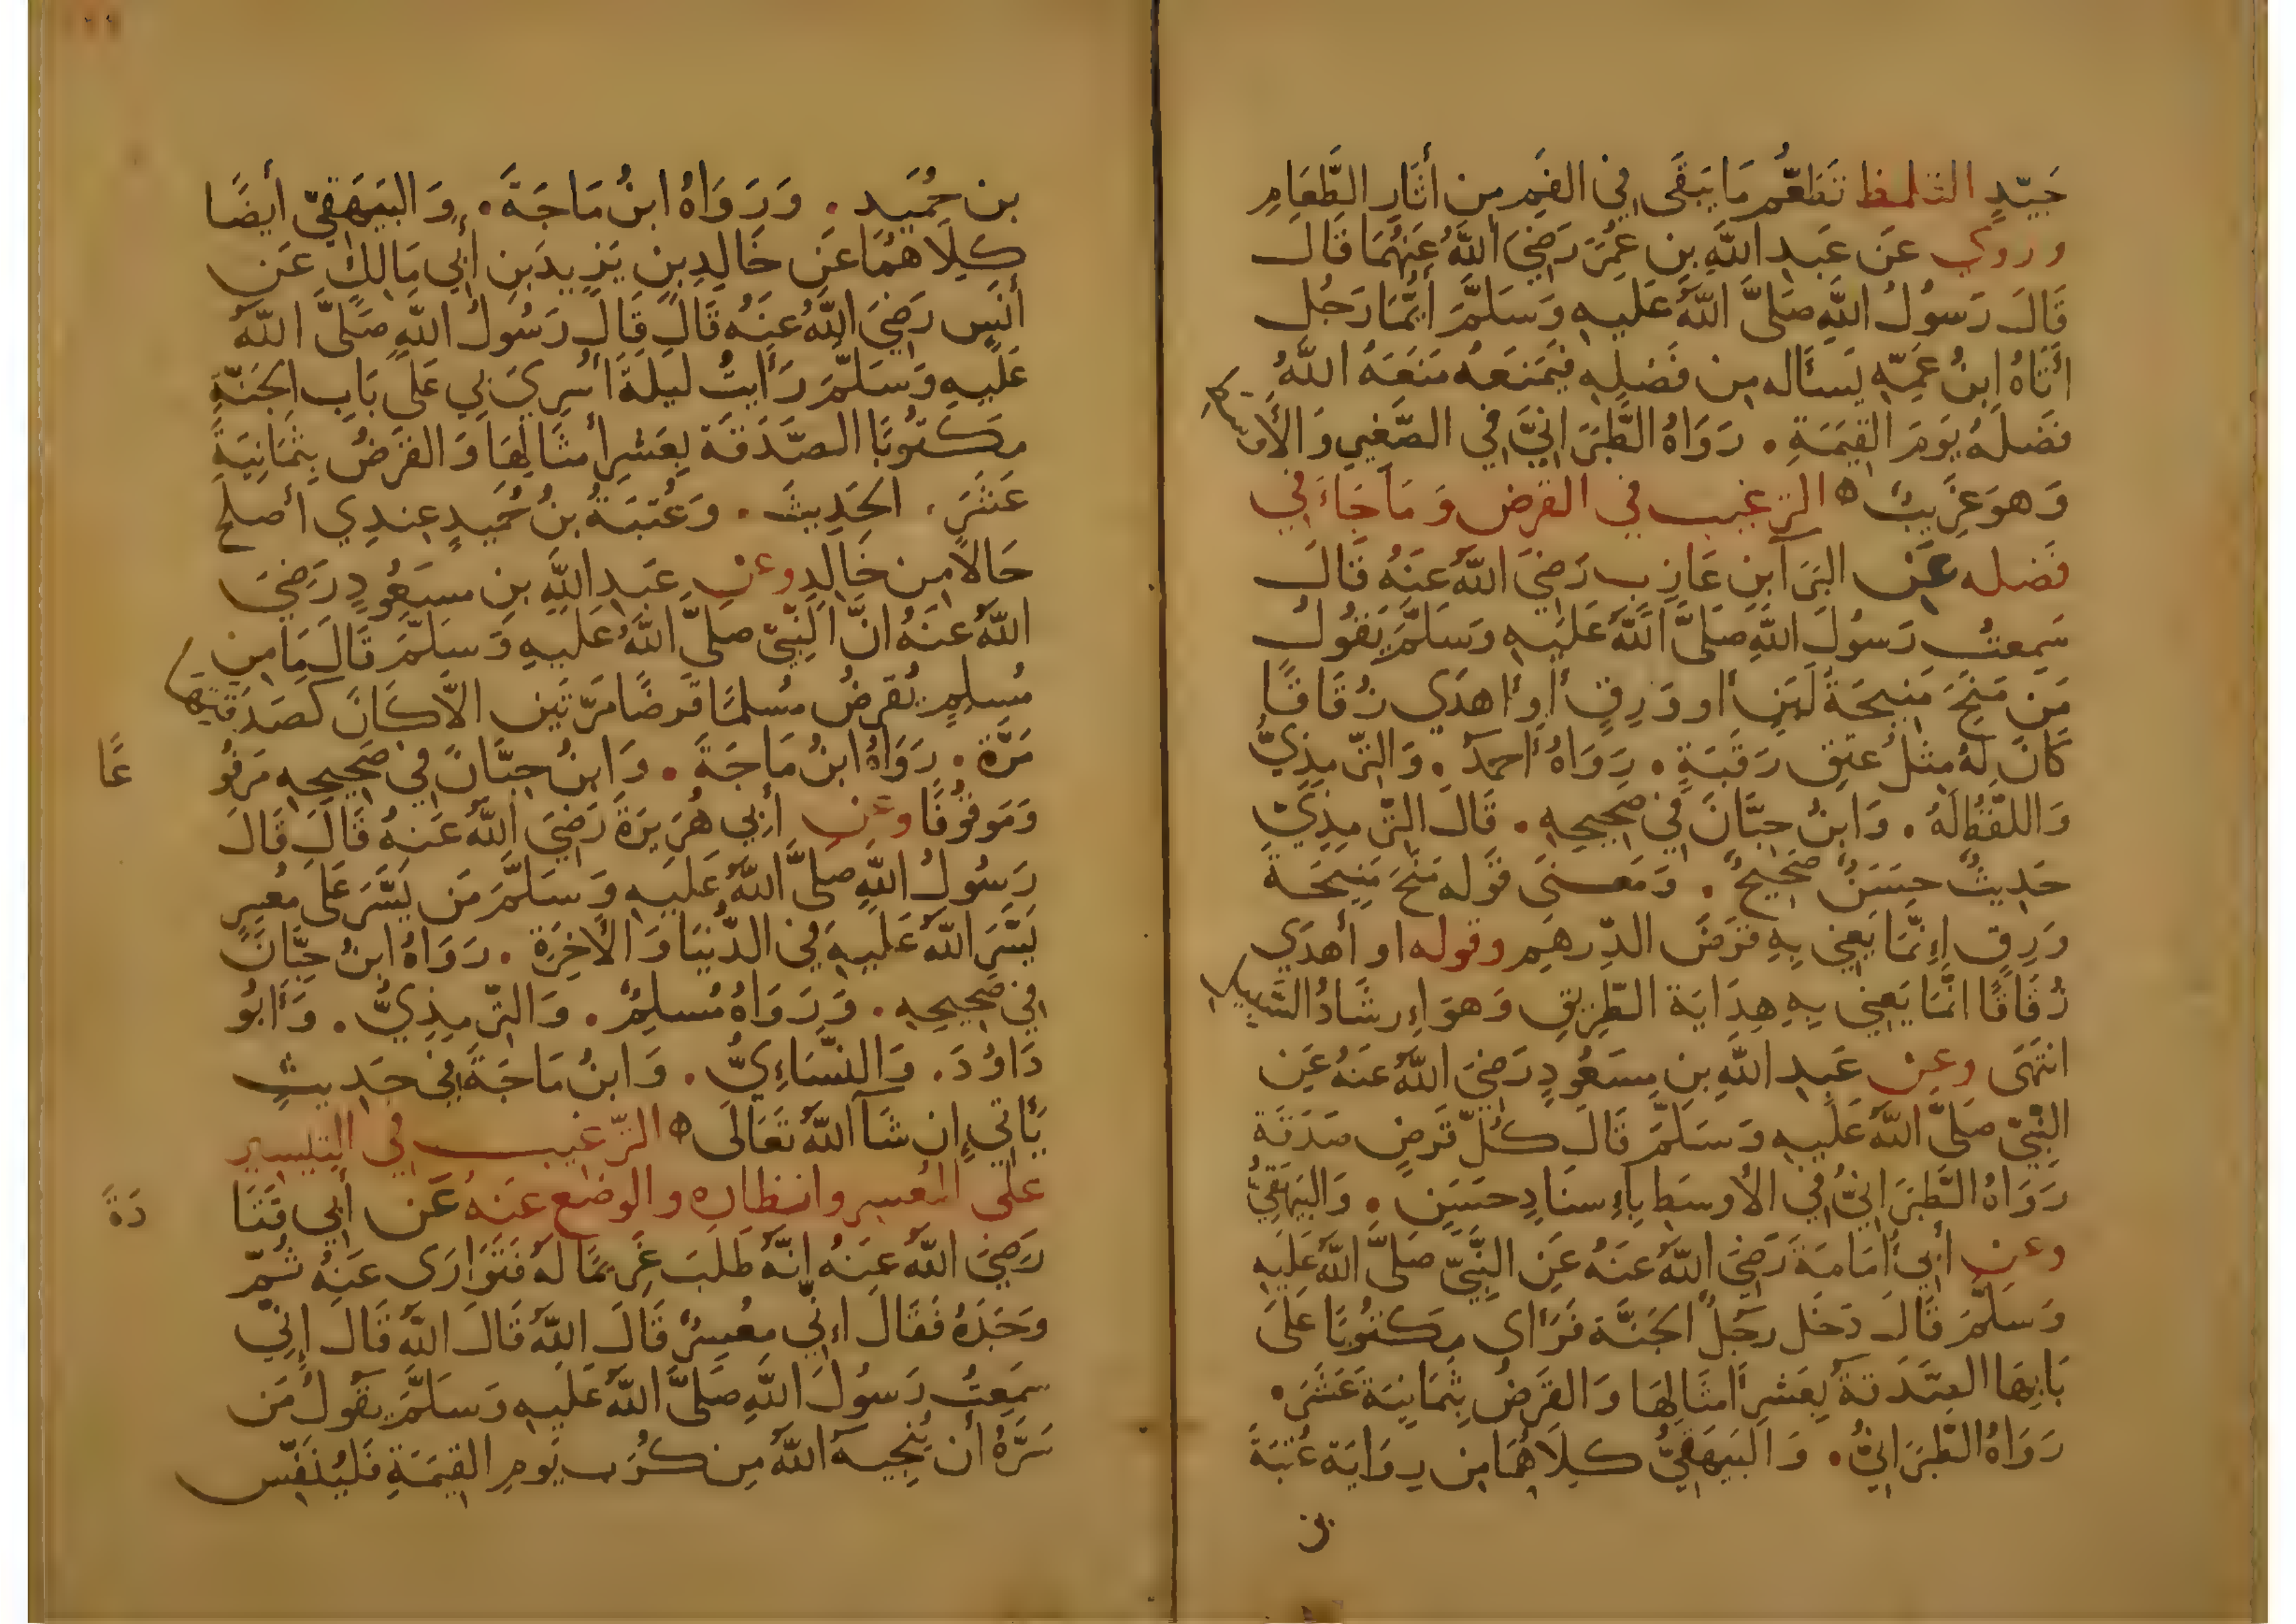 جَيّدٍ التلمظ تَطَعُّم مَا يَبقَى فِي الفَمِ مِن أثَارِ الطَّعَامِ
وروي عَن عَبدِ اللَّهِ بنِ عُمَرَ رَضِيَ اللَّهُ عَنهُمَا قَالَ
قَالَ رَسُولُ اللَّهِ صَلَّى اللَّهُ عَلَيهِ وَسَلَّمَ أيُّمَا رَجُلٍ
أتَاهُ ابنُ عَمِّهِ يَسأَله مِن فَضلِهِ فَمَنَعَهُ مَنَعَهُ اللَّهُ
فَضلَهُ يَومَ القِيمَةِ . رَوَاهُ الطَّبَرَانِيُّ فِي الصَّغِيرِ وَالأَوسَط
وَهوَ غَرِيبٌ ه الترغيب في القرض وَمَا جَاءَ فِي
فَضله عَن البَرَآ بنِ عَازِبٍ رَضِيَ اللَّهُ عَنهُ قَالَ
سَمِعتُ رَسُولَ اللَّهِ صَلَّى اللَّهُ عَلَيهِ وَسَلَّمَ يَقُولُ
مَن مَنَحَ مَنِيحَةَ لَبَنٍ أو وَرِقٍ أَو أهدَى زُقَاقًا
كَانَ لَهُ مِثلُ عِتقِ رَقَبَةٍ . رَوَاهُ أحمَدُ . وَالتِّرمِذِيُّ
وَاللَّفظُ لَهُ . وَابنُ حِبَّانَ فِي صَحِيحِهِ . قَالَ التِّرمِذِيّ
حَدِيثٌ حَسَنٌ صَحِيحٌ . وَمَعنَى قَوله مَنَحَ مَنِيحَةَ
وَرِقٍ إِنَّمَا يَعنِي بِهِ قَرضَ الدِّرهَمِ وقوله او أهدَى
زُقَاقًا انَّمَا يَعنِي بِهِ هِدَايَةَ الطَّرِيقِ وَهوَ إِرشَادُ السَّبِيلِ
انتَهَى وعن عَبدِ اللَّهِ بنِ مَسعُودٍ رَضِيَ اللَّهُ عَنهُ عَنِ
النَّبِيِّ صَلَّى اللَّهُ عَلَيهِ وَسَلَّمَ قَالَ كُلُّ قَرضٍ صَدَقَة
رَوَاهُ الطَّبَرَانِيُّ فِي الأَوسَطِ بِإِسنَادٍ حَسَنٍ . وَالبَيهَقِيُّ
وعن أبِي أُمَامَةَ رَضِيَ اللَّهُ عَنهُ عَنِ النَّبِيِّ صَلَّى اللَّهُ عَلَيهِ
وَسَلَّمَ قَالَ دَخَلَ رَجُلٌ الجَنَّة فَرَأى مَكتُوبًا عَلَى
بَابِهَا الصَّدَقَةُ بِعَشرِ أَمثَالِهَا وَالقَرضُ بِثَمَانِيَةَ عَشَرَ .
رَوَاهُ الطَّبَرَانِيُّ . وَالبَيهَقِيُّ كِلَاهُمَا مِن رِوَايَة عُتبَةَ
بن
بن حُمَيدٍ . وَرَوَاهُ ابنُ مَاجَةَ . وَالبَيهَقِيّ أيضًا
كِلَاهُمَا عَن خَالِدِ بنِ يَزِيدَ بنِ أبِي مَالِكٍ عَن
أنَسٍ رَضِيَ اللَّهُ عَنهُ قَالَ قَالَ رَسُولُ اللَّهِ صَلَّى اللَّهُ
عَلَيهِ وَسَلَّمَ رَأَيتُ لَيلَةَ أُسرِيَ بِي عَلَى بَابِ الجَنَّةِ
مَكتُوبًا الصَّدَقَة بِعَشرِ أمثَالِهَا وَالقَرضُ بِثَمَانِيَةَ
عَشَرَ . الحَدِيثَ . وَعُتبَةُ بنُ حُمَيدٍ عِندِي أصلَح
حَالًا مِن خَالِدٍ وعن عَبدِ اللَّهِ بنِ مسعُودٍ رَضِيَ
اللَّهُ عَنهُ انَّ النَّبِيّ صَلَّى اللَّهُ عَلَيهِ وَسَلَّمَ قَالَ مَا مِن
مُسلِمٍ يُقرِضُ مُسلِمًا قَرضًا مَرَّتَينِ الَّا كَانَ كَصَدَقَتِهَا
مَرَّة . رَوَاهُ ابنُ مَاجَةَ . وَابنُ حِبَّانَ فِي صَحِيحِهِ مَرفُو
عًا
وَمَوقُوفًا وعن أبِي هُرَيرَةَ رَضِيَ اللَّهُ عَنهُ قَالَ قَالَ
رَسُولُ اللَّهِ صَلَّى اللَّهُ عَلَيهِ وَسَلَّمَ مَن يَسَّرَ عَلَى مُعسِرٍ
يَسَّرَ اللَّهُ عَلَيهِ فِي الدُّنيَا وَالأخِرَةِ . رَوَاهُ ابنُ حِبَّانَ
فِي صَحِيحِهِ . وَرَوَاهُ مُسلِمٌ . وَالتِّرمِذِيُّ . وَأَبُو
دَاوُدَ . وَالنَّسَاءِيُّ . وَابنُ مَاجَةَ فِي حَدِيثٍ
يَأتِي إِن شَآ اللَّهُ تَعَالَى ه الترغيب في التيسير
على المعسر وانظاره والوضع عنه عَن أبِي قَتَا
دَةَ
رَضِيَ اللَّهُ عَنهُ انَّهُ طَلَبَ غَرِيمًا لَهُ فَتَوَارَى عَنهُ ثُمَّ
وَجَدَهُ فَقَالَ اءِنِّي مُعسِرٌ قَالَ اللَّهَ قَالَ اللَّهَ قَالَ إِنِّي
سَمِعتُ رَسُولَ اللَّهِ صَلَّى اللَّهُ عَلَيهِ وَسَلَّمَ يَقُولُ مَن
سَرَّهُ أن يُنجِيَهُ اللَّهُ مِن كُرَبِ يَومِ القِيمَةِ فَليُنَفِّس